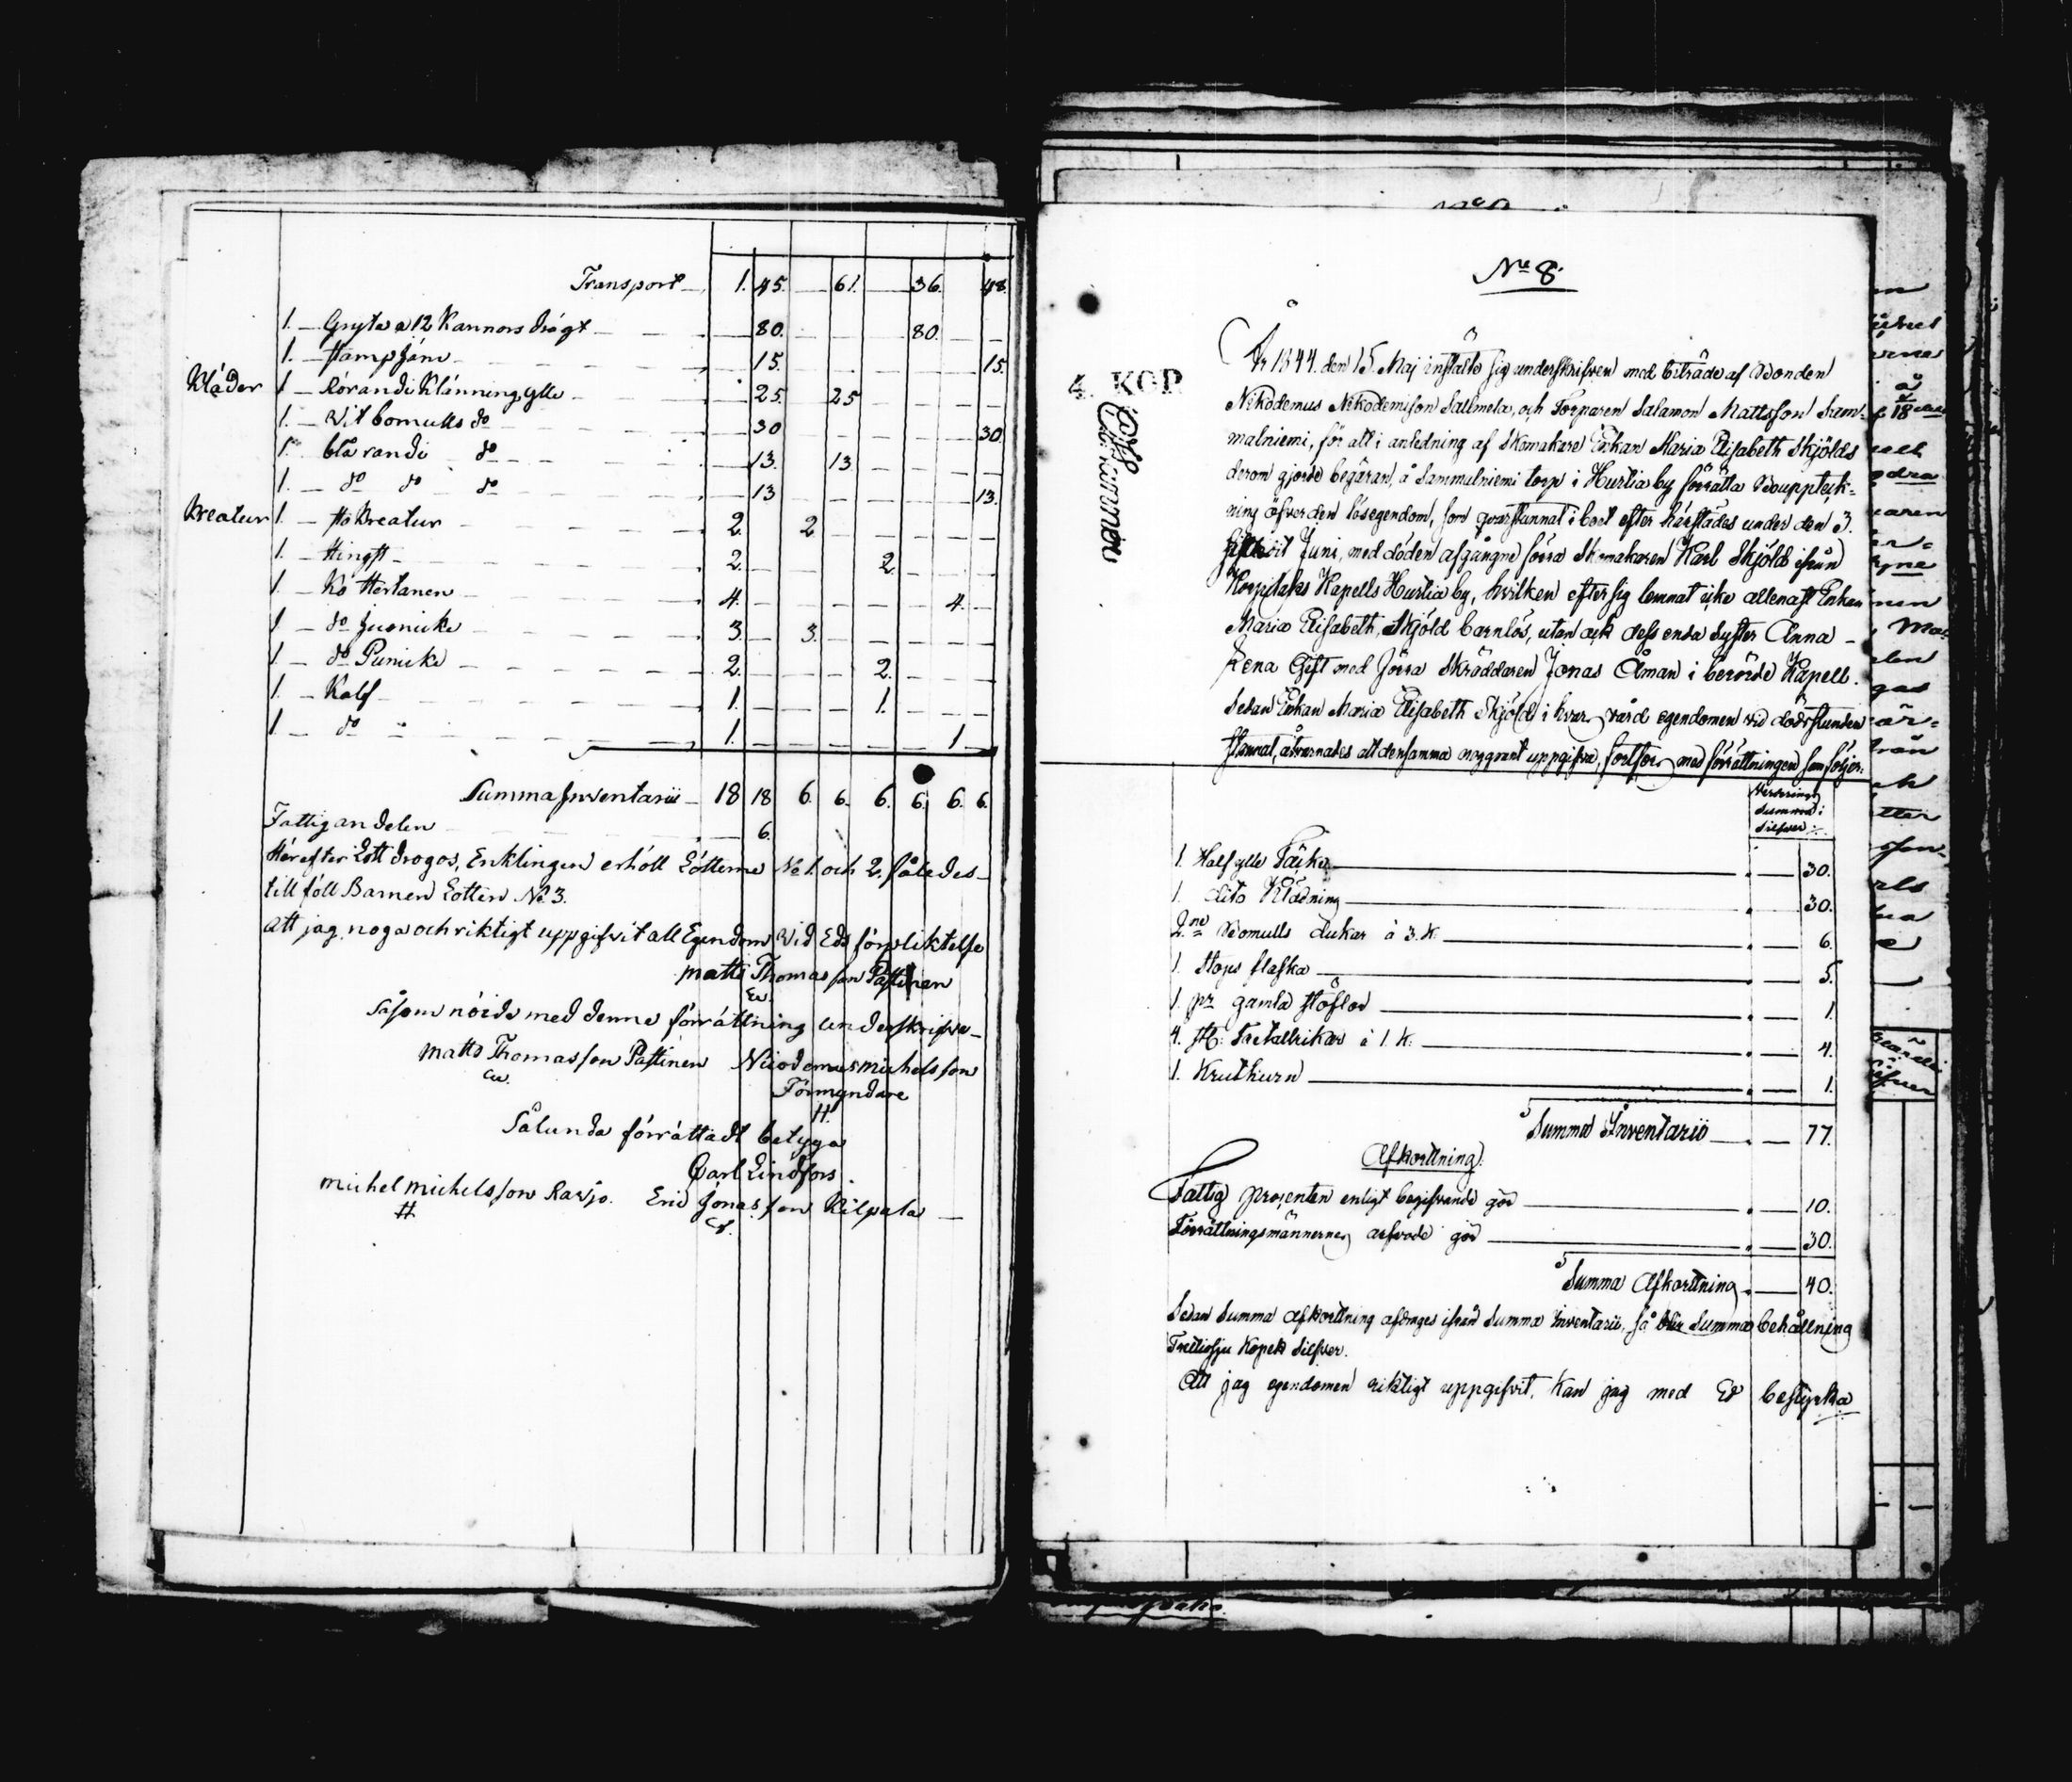 Transport — 1. 45. — 61. — 36. 48.
1. — Gryta a 12 Kannors drägt — 80. — 80.
1. — Hampjärn — 15. — 15.
Kläder 1 — Rörandi Klänning ylle — 25. 25
1. — Vit bomulls do — 30 — 30.
1. — blå randi do — 13. 13
1. — do do do — 13 — 13.
Kreatur 1. — Stokreatur — 2. 2
1. — Hingst — 2. — 2.
1. — Ko Hertanen — 4. — 4.
1 — do Juonicke — 3. 3.
1. — do Punicki — 2. — 2.
1. — Kalf — 1. — 1.
1. — do — 1. — 1
Summa Inventarii — 18 18 6. 6. 6. 6. 6. 6.
Fattigandelen — 6.
Härefter Lott drogos, Enklingen erhöll Lotterne No 1. och 2. således
till föll Barnen Lotten No 3.
Att jag noga och riktigt uppgifvit all Egendom vid Eds förpliktelse
Matts Thomasson Pastinen
Såsom nöjde med denne förrättning underskrifva
Matts Thomasson Pastinen Nicodemus Michelsson
Förmyndare
Sålunda förrättadt betyga
Carl Lindfors.
Michel Michelsson Ravjo. Eric Jonasson Kilpala —
No 8.
4. KOP
År 1844. den 15. Maj instälte sig underskrifven med biträde af Bonden
Nikodemus Nikodemison Sallmela, och Torparen Salamon Mattsson Sam-
malniemi, för att i anledning af Skomakare Enkan Maria Elisabeth Skjölds
derom gjorde begäran, å Sammalniemi torp i Hurtia by förrätta Bouppteck-
ning öfver den lösegendom, som qvarstannat i boet efter härstädes under den 3.
Juni, med döden afgångne förra Skomakaren Karl Skjöld ifrån
Kapells Hurtia by, hvilken efter sig lemnat icke allenast Enkan
Maria Elisabeth Skjöld barnlös, utan ock dess enda Syster Anna
Lena Gift med förra Skräddaren Jonas Åman i berörde Kapell.
Sedan Enkan Maria Elisabeth Skjöld i hvars vård egendomen vid dödsstunden
stannat, åvarnades att densamma noggrant uppgifva, fortfor med förrättningen som följer:
Värderings
Summa i
Silfver
1. Half ylle Täcke — 30.
1. dito Klädning — 30.
2ne Bomulls dukar à 3. K. — 6.
1. Stops flaska — 5.
1. pr gamla Stöflor — 1
4. St: Tretallrikar à 1. K. — 4.
1. Kruthurn — 1.
Summa Inventario — 77.
Afkortning.
Fattig procenten enligt begifvande gör — 10.
Förrättningsmännernes arfvode gör — 30.
Summa Afkortning — 40.
Sedan Summa afkortning afdrages ifrån Summa Inventarii, så blir Summa behållning
Trettiosju Kopek Silfver.
Att jag egendomen riktigt uppgifvit, kan jag med Ed bestyrka